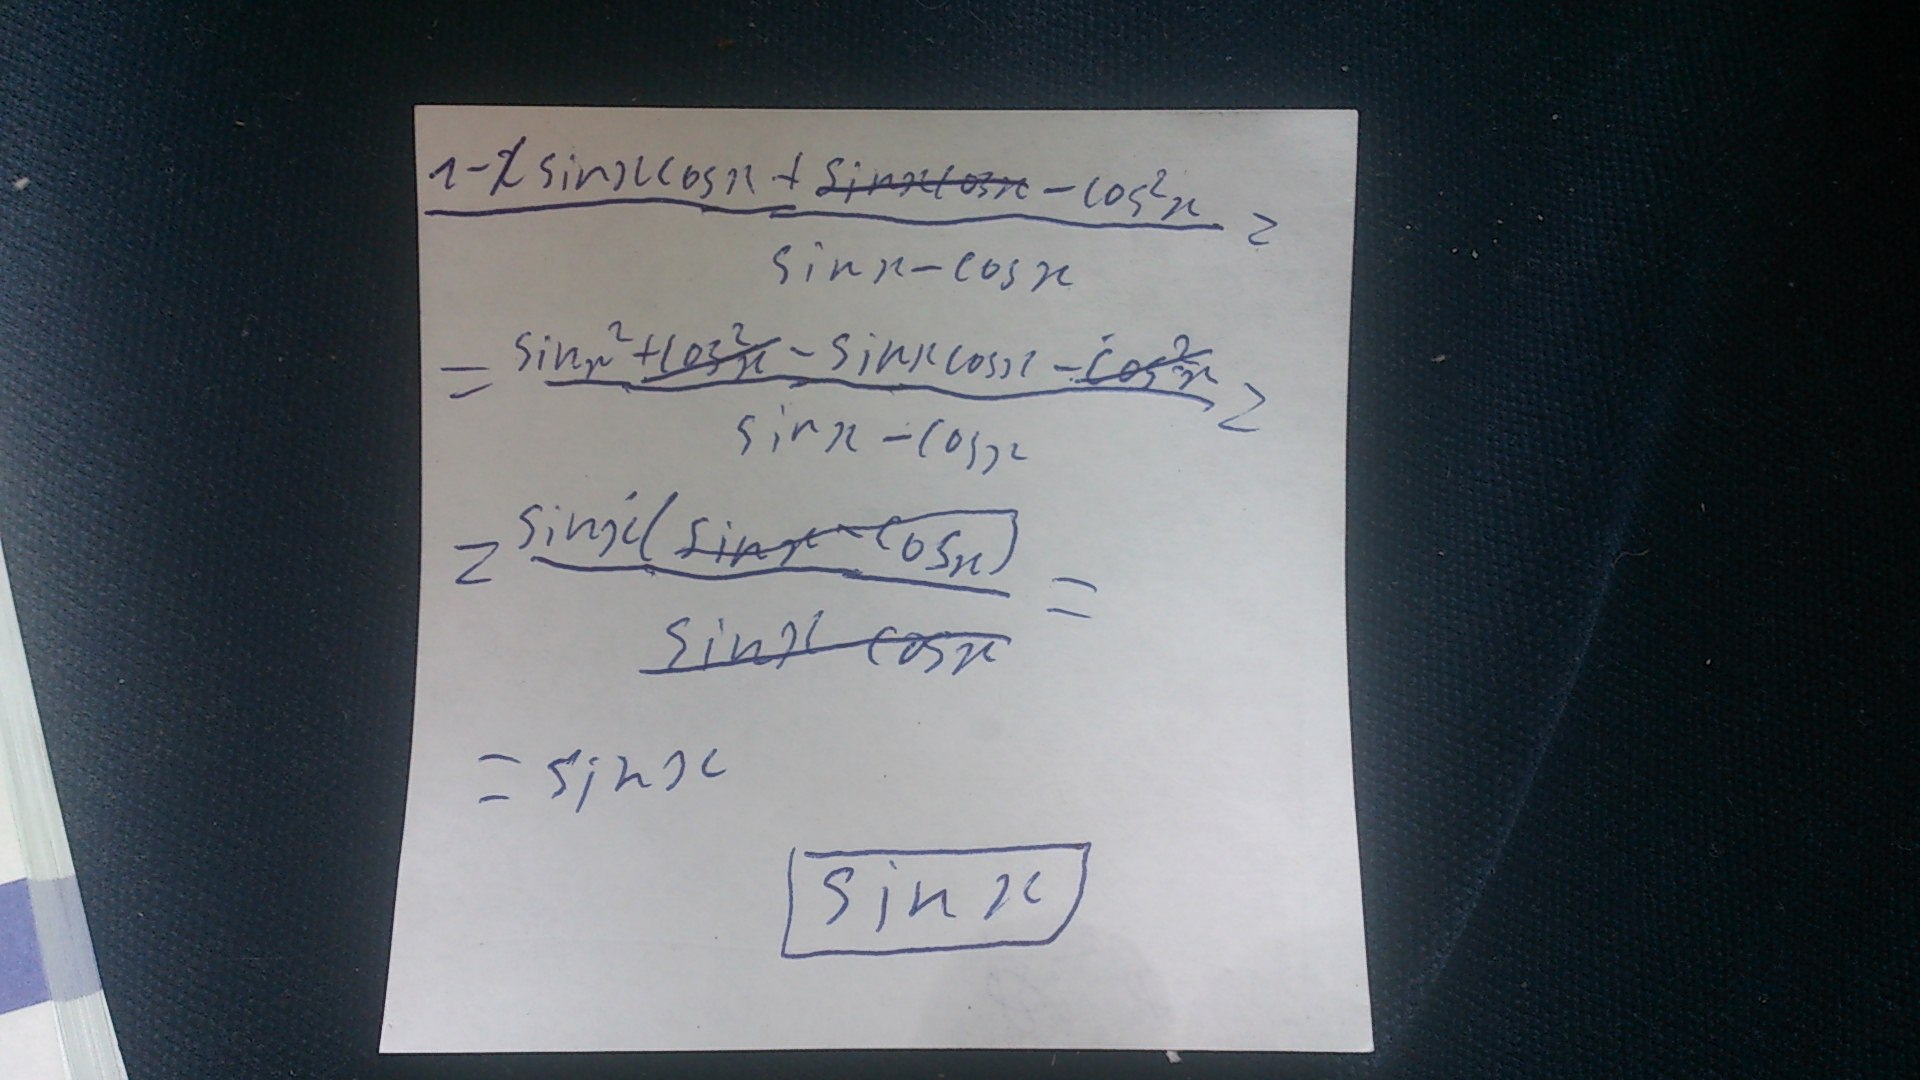 1-2sinxcosx+sinxcosx-cos²x =
sinx-cosx
= sinx²+cos²x-sinxcosx-cos²x =
sinx-cosx
= sinx(sinx-cosx) =
sinx-cosx
= sinx
sinx